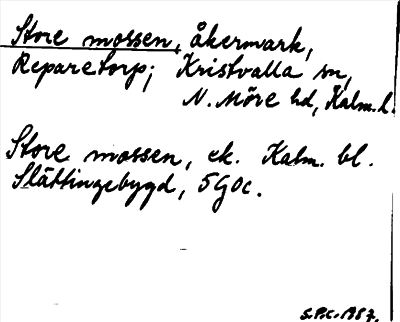 Store mossen, åkermark,
Reparetorp; Kristvalla sn,
N. Möre hd, Kalm. l.
Store mossen, ek. Kalm. bl.
Slättingebygd, 5G0c.
S.P.C. 1957.